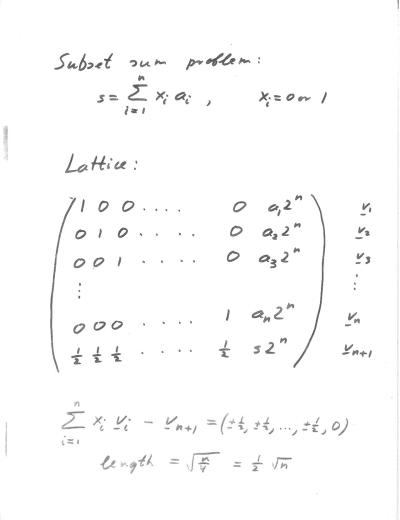 Subset sum problem:
s = \sum_{i=1}^{n} x_i a_i , x_i = 0 or 1
Lattice:
1 0 0 .... 0 a_1 2^n v_1
0 1 0 .... 0 a_2 2^n v_2
0 0 1 .... 0 a_3 2^n v_3
⋮ ⋮
0 0 0 .... 1 a_n 2^n v_n
½ ½ ½ .... ½ s 2^n v_{n+1}
\sum_{i=1}^{n} x_i v_i - v_{n+1} = (±½, ±½, ..., ±½, 0)
length = \sqrt{n/4} = ½ \sqrt{n}